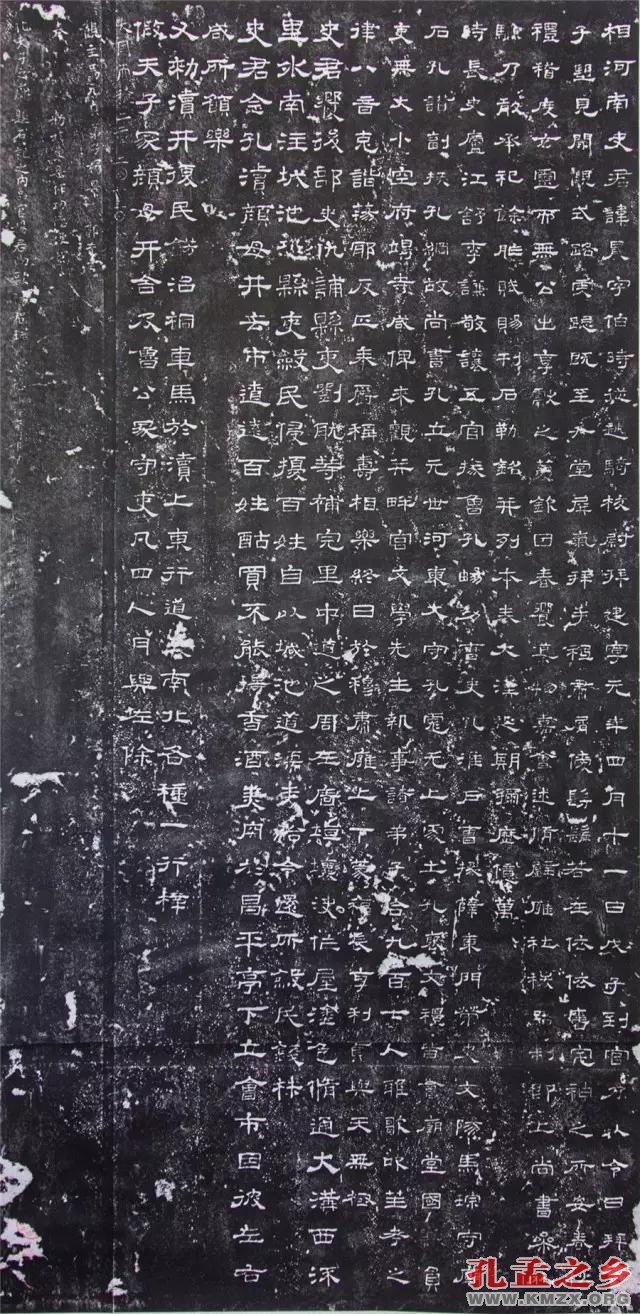 相河南史君諱晨字伯時從越騎校尉拜建寧元年四月十一日戊子到官乃以令日拜
子望見闕觀式路虔跽既至升堂屏氣拜手祗肅屑僾髣髴若在依依舊宅神之所安春
禮稽度玄靈而無公出享獻之薦欽因春饗導物嘉會述脩辟雍社稷品制即上尚書參
驗乃敢承祀餘胙賦賜刊石勒銘并列本奏大漢延期彌歷億萬
時長史廬江舒李謙敬讓五官掾魯孔暘功曹史孔淮戶曹掾薛東門榮史文陽馬琮守廟
石孔讚副掾孔綱故尚書孔立元世河東大守孔彪元上處土孔褒文禮皆會廟堂國縣員
吏無大小空府竭寺咸俾來觀并畔宮文學先生執事諸弟子合九百七人雅歌吹笙考之
律八音克諧蕩邪反正奉爵稱壽相樂終日於穆肅雍上下蒙福長享利貞與天無極
史君饗後部史仇誧縣吏劉耽等補完里中道之周左廧垣壞決作屋塗色脩通大溝西流
里外南注城池恐縣吏斂民侵擾百姓自以城池道濡麥給令還所斂民錢材
史君念孔瀆顏母井去市遼遠百姓酤買不能得香酒美肉於昌平亭下立會市因彼左右
咸所願樂
又敕瀆井復民餝治桐車馬於瀆上東行道表南北各種一行梓
假夫子冢顏母井舍及魯公冢守吏凡四人月與佐除
孔孟之乡
WWW.KMZX.ORG